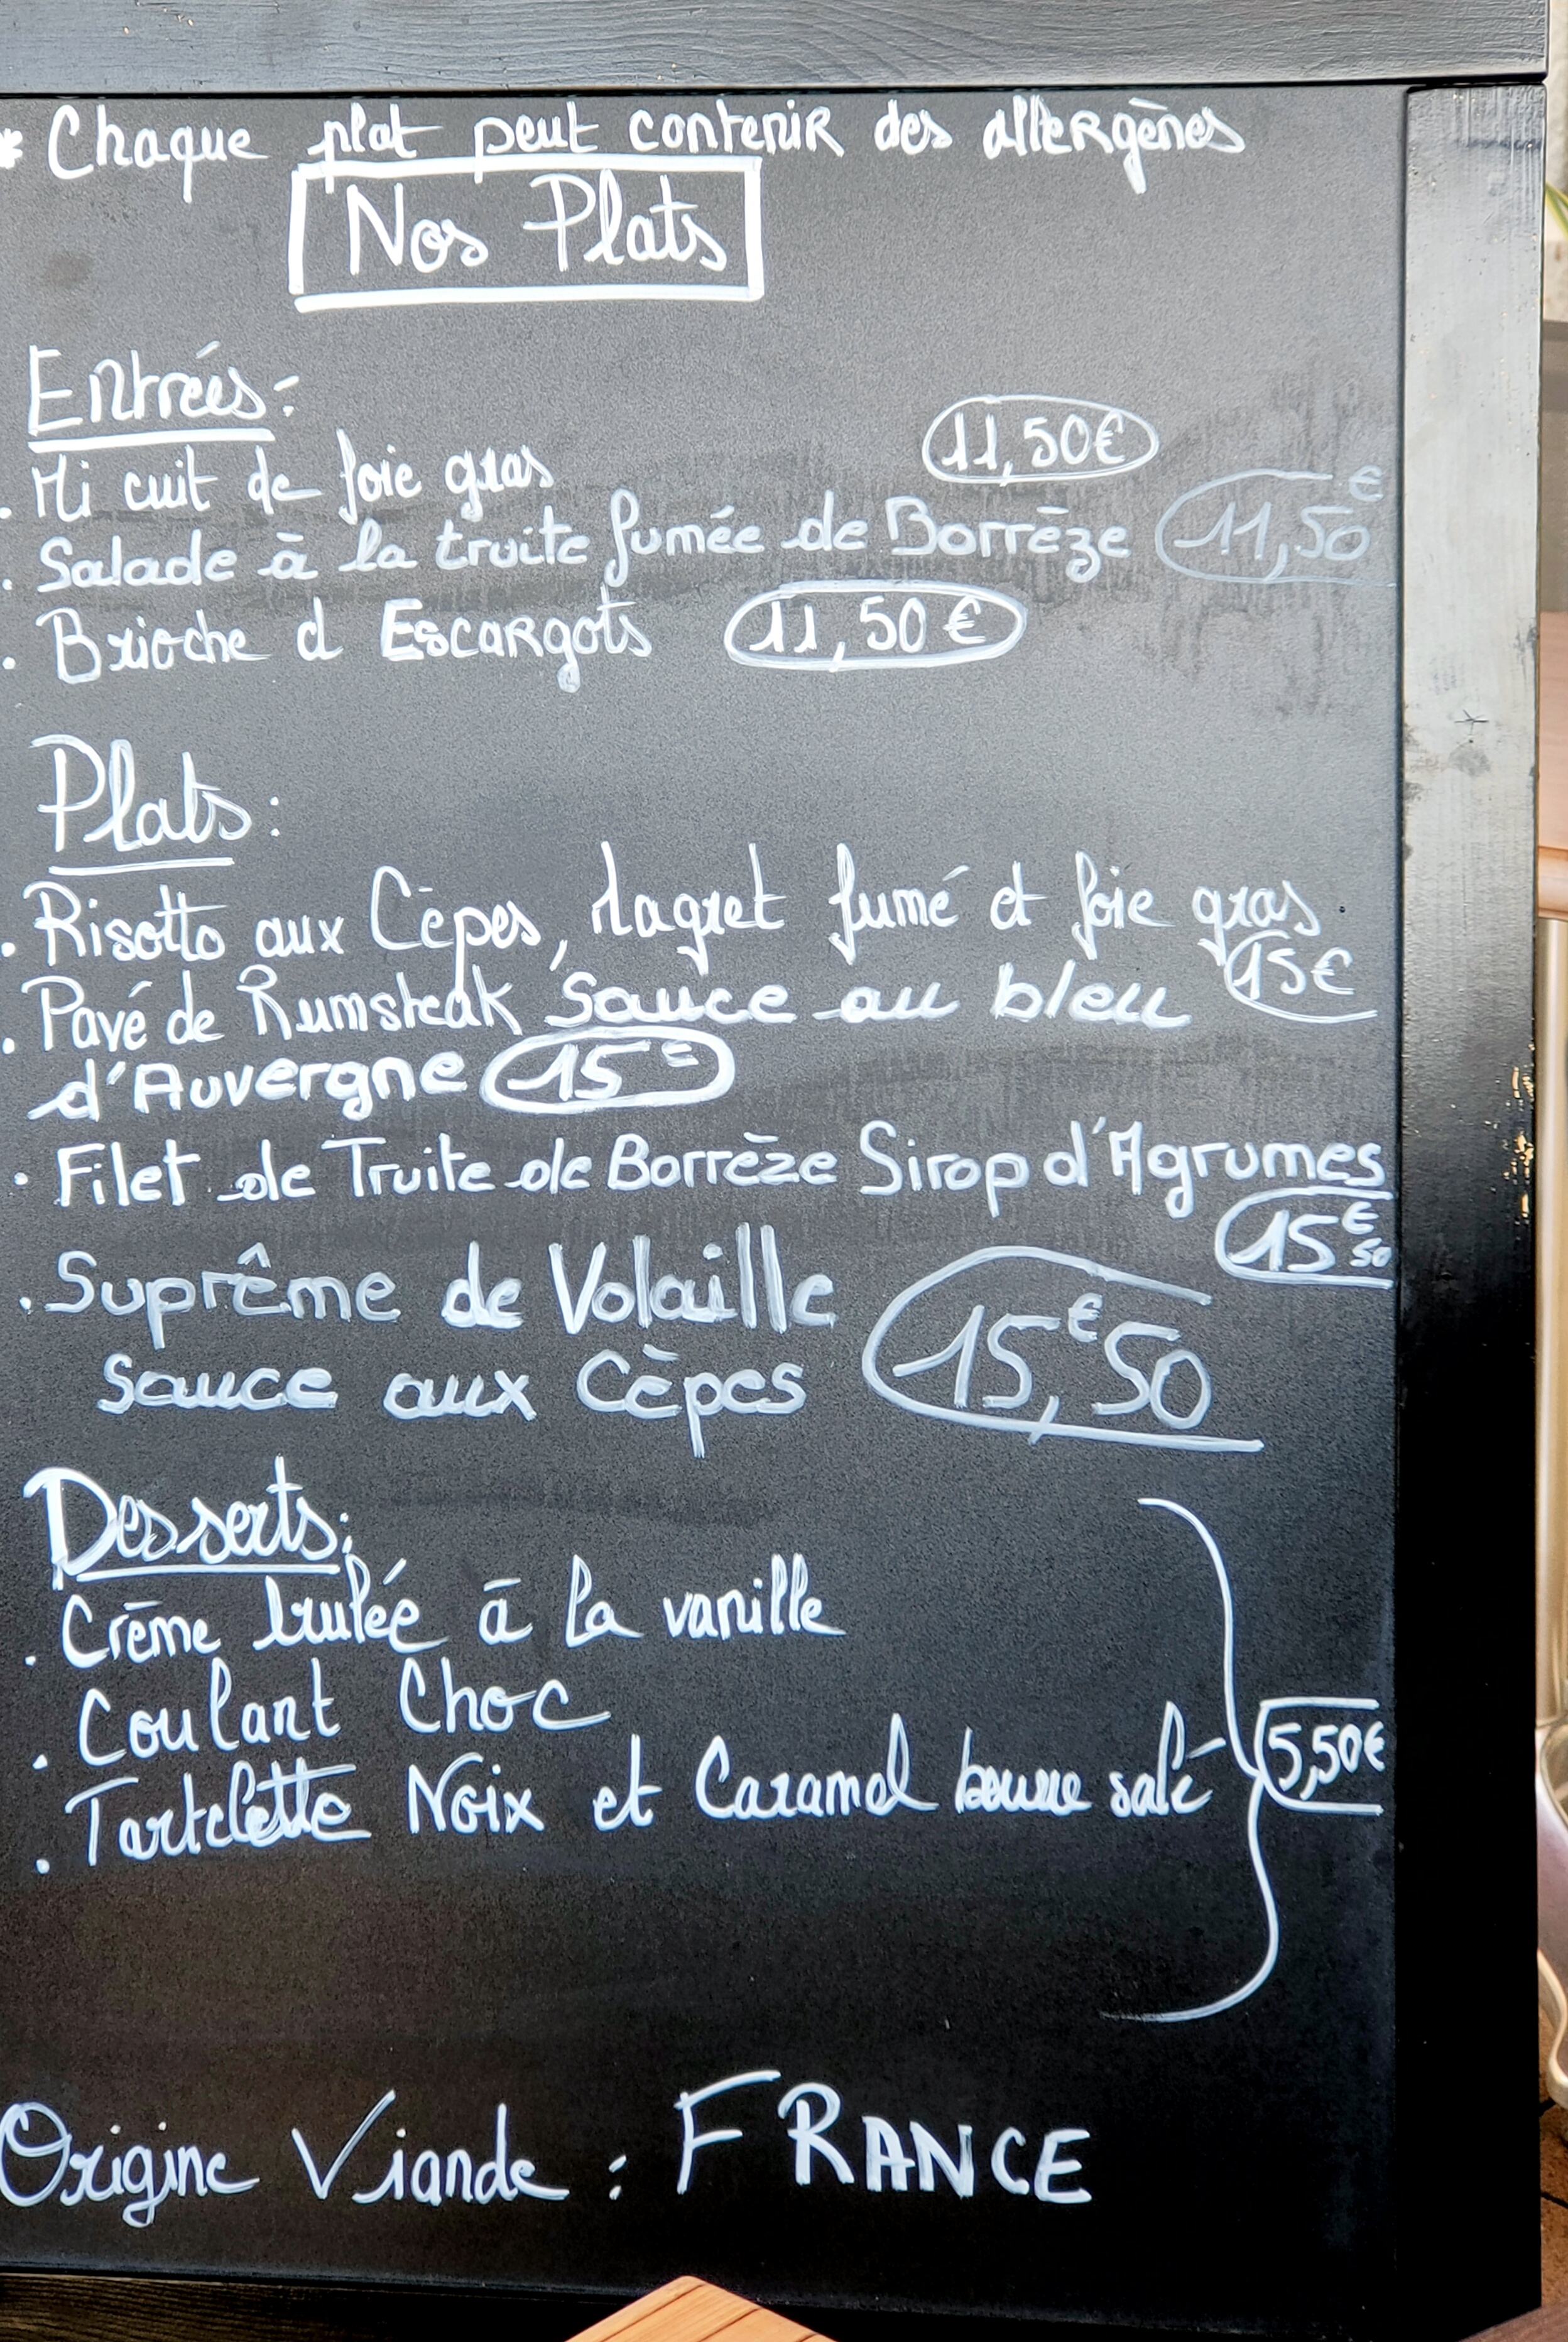 * Chaque plat peut contenir des allergènes
Nos Plats
Entrées:
. Mi cuit de foie gras 11,50€
. Salade à la truite fumée de Borrèze 11,50€
. Brioche d Escargots 11,50€
Plats:
. Risotto aux Cèpes, Magret fumé et foie gras 15€
. Pavé de Rumsteak Sauce au bleu
d'Auvergne 15€
. Filet de Truite de Borrèze Sirop d'Agrumes
15€50
. Suprême de Volaille
Sauce aux Cèpes 15,€50
Desserts:
. Crème brulée à la vanille
. Coulant Choc
. Tartelette Noix et Caramel beurre salé 5,50€
Origine Viande : FRANCE